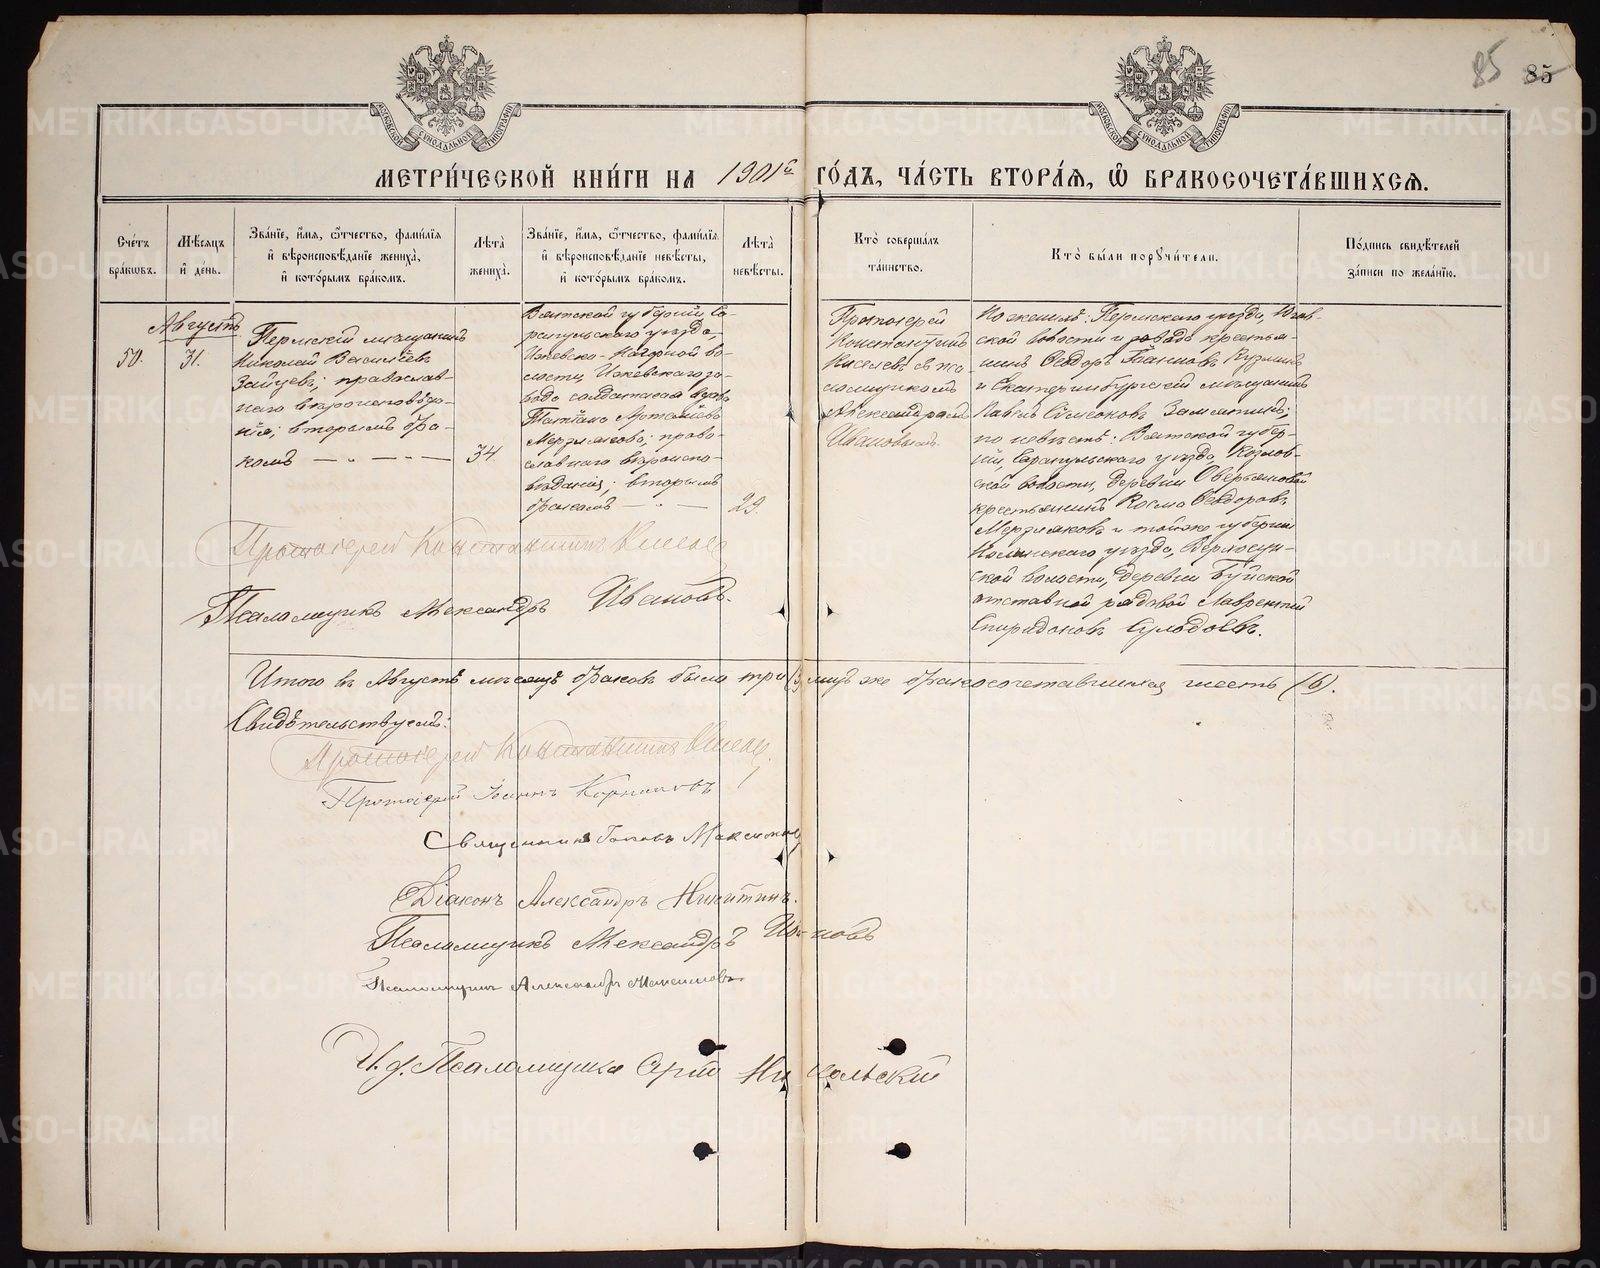 85 85
МЕТРИ́ЧЕСКОЙ КНИ́ГИ НА 1901й ГО́ДЪ, ЧА́СТЬ ВТОРА́Я, Ѿ БРАКОСОЧЕТА́ВШИХСЯ.
Сче́тъ
бра́кѡвъ.
Мѣ́сяцъ
и҆ де́нь.
Зва́нїе, и҆́мя, ѻ҆́тчество, фами́лїя
и҆ вѣроисповѣ́данїе жениха̀,
и҆ кото́рымъ бра́комъ.
Лѣта̀
жениха̀.
Зва́нїе, и҆́мя, ѻ҆́тчество, фами́лїя
и҆ вѣроисповѣ́данїе невѣ́сты,
и҆ кото́рымъ бра́комъ.
Лѣта̀
невѣ́сты.
Кто̀ соверша́лъ
та́инство.
Кто̀ бы́ли порꙋчи́тели.
По́дпись свидѣ́телей
за́писи по жела́нїю.
Августъ
50.
31.
Пермскій мѣщанинъ
Николай Васильевъ
Зайцевъ; православ-
наго вѣроисповѣда-
нія; вторымъ бра-
комъ
34.
Вятской губерніи Са-
рапульскаго уѣзда,
Ижевско-Нагорной во-
лости, Ижевскаго за-
вода солдатская вдова
Татіана Артемьева
Мерзлякова; право-
славнаго вѣроиспо-
вѣданія; вторымъ
бракомъ
29.
Протоіерей
Константинъ
Киселевъ съ пса-
ломщикомъ
Александромъ
Ивановымъ.
По женихѣ: Пермскаго уѣзда, Югов-
ской волости и завода крестья-
нинъ Ѳеодоръ Кузминъ
и Екатеринбургскій мѣщанинъ
Павелъ Симеоновъ Замятинъ;
по невѣстѣ: Вятской губер-
ніи, Сарапульскаго уѣзда, Козлов-
ской волости, деревни
крестьянинъ Косма Ѳеодоровъ
Мерзляковъ и той-же губерніи
уѣзда,
ской волости, деревни Буйской
отставной рядовой Лаврентій
Спиридоновъ
Протоіерей Константинъ Киселевъ
Псаломщикъ Александръ Ивановъ.
Итого въ Августѣ мѣсяцѣ браковъ было три (3) лицъ же бракосочетавшихся шесть (6).
Свидѣтельствуемъ:
Протоіерей Константинъ Киселевъ
Протоіерей Іоаннъ
Священникъ
Діаконъ Александръ Никитинъ.
Псаломщикъ Александръ Ивановъ
Псаломщикъ Александръ
И. д. Псаломщика Никольскій
METRIKI.GASO-URAL.RU